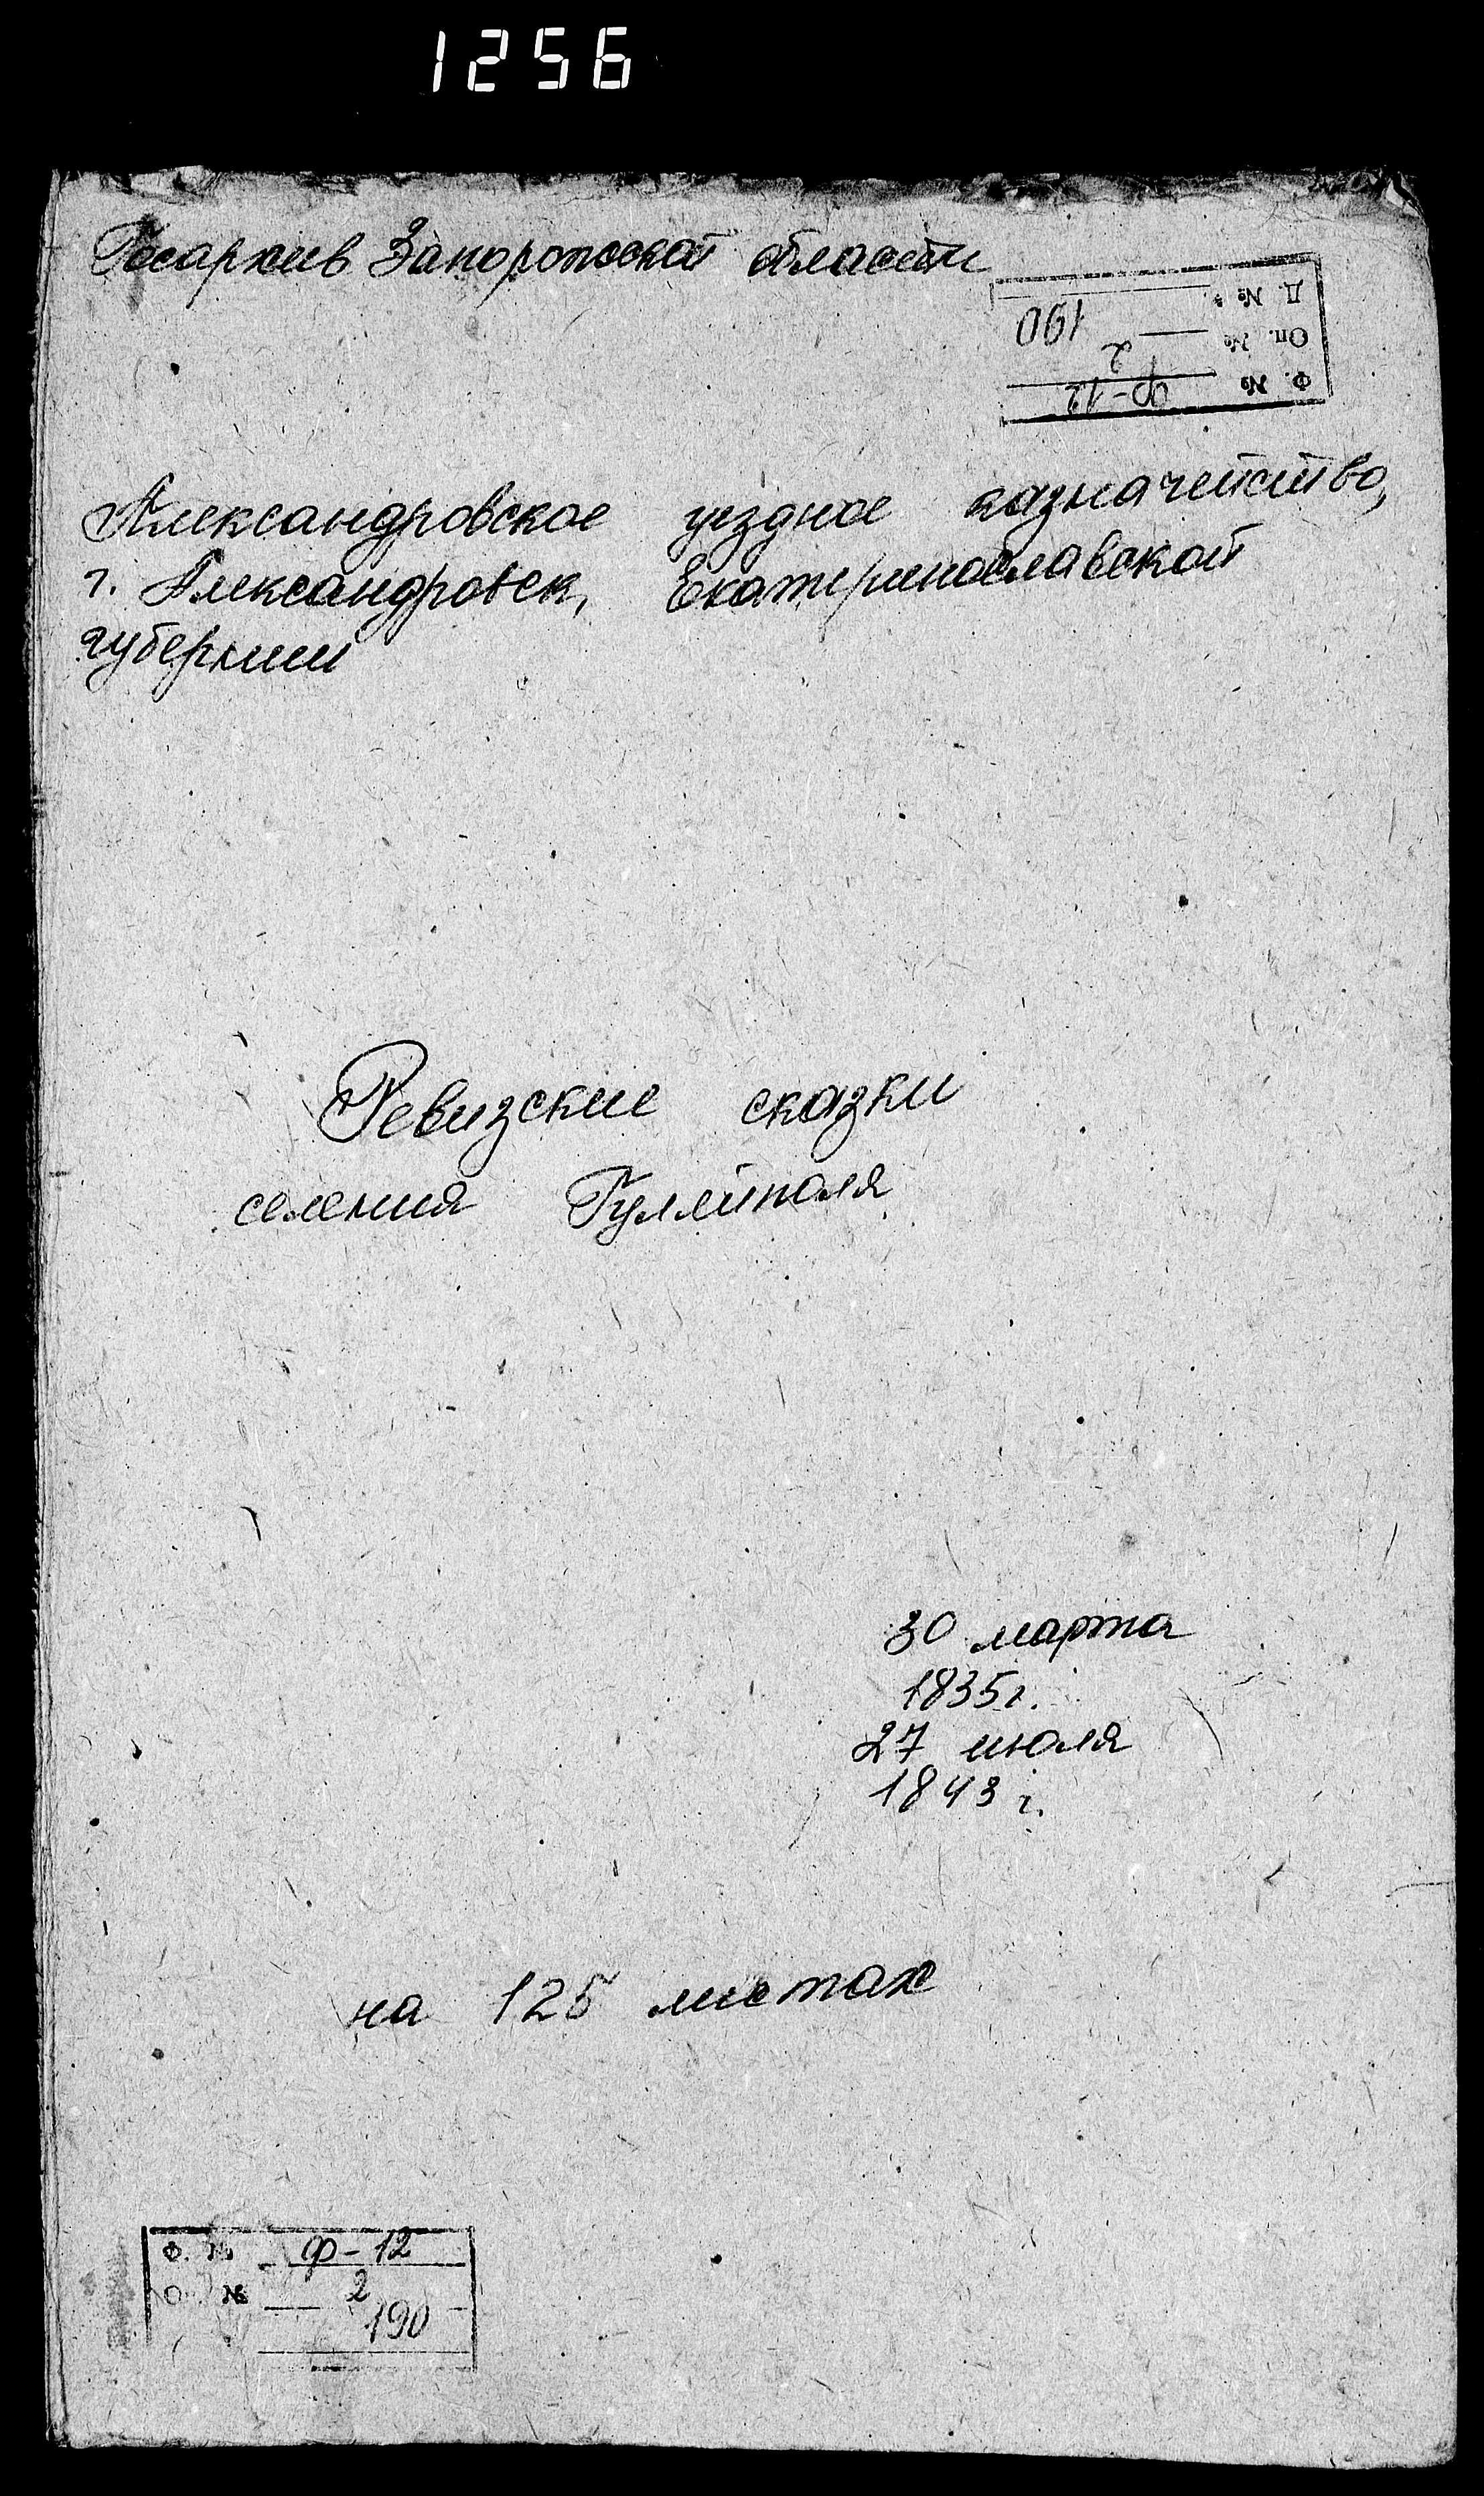 1256
Госархив Запорожской области
Д. № 190
Оп. № 2
Ф. № Ф-12
Александровское уездное казначейство,
г. Александровск, Екатеринославской
губернии
Ревизские сказки
селения Гуляйполя
30 марта
1835 г.
27 июля
1843 г.
на 125 листах
Ф. № Ф-12
О. № 2
190